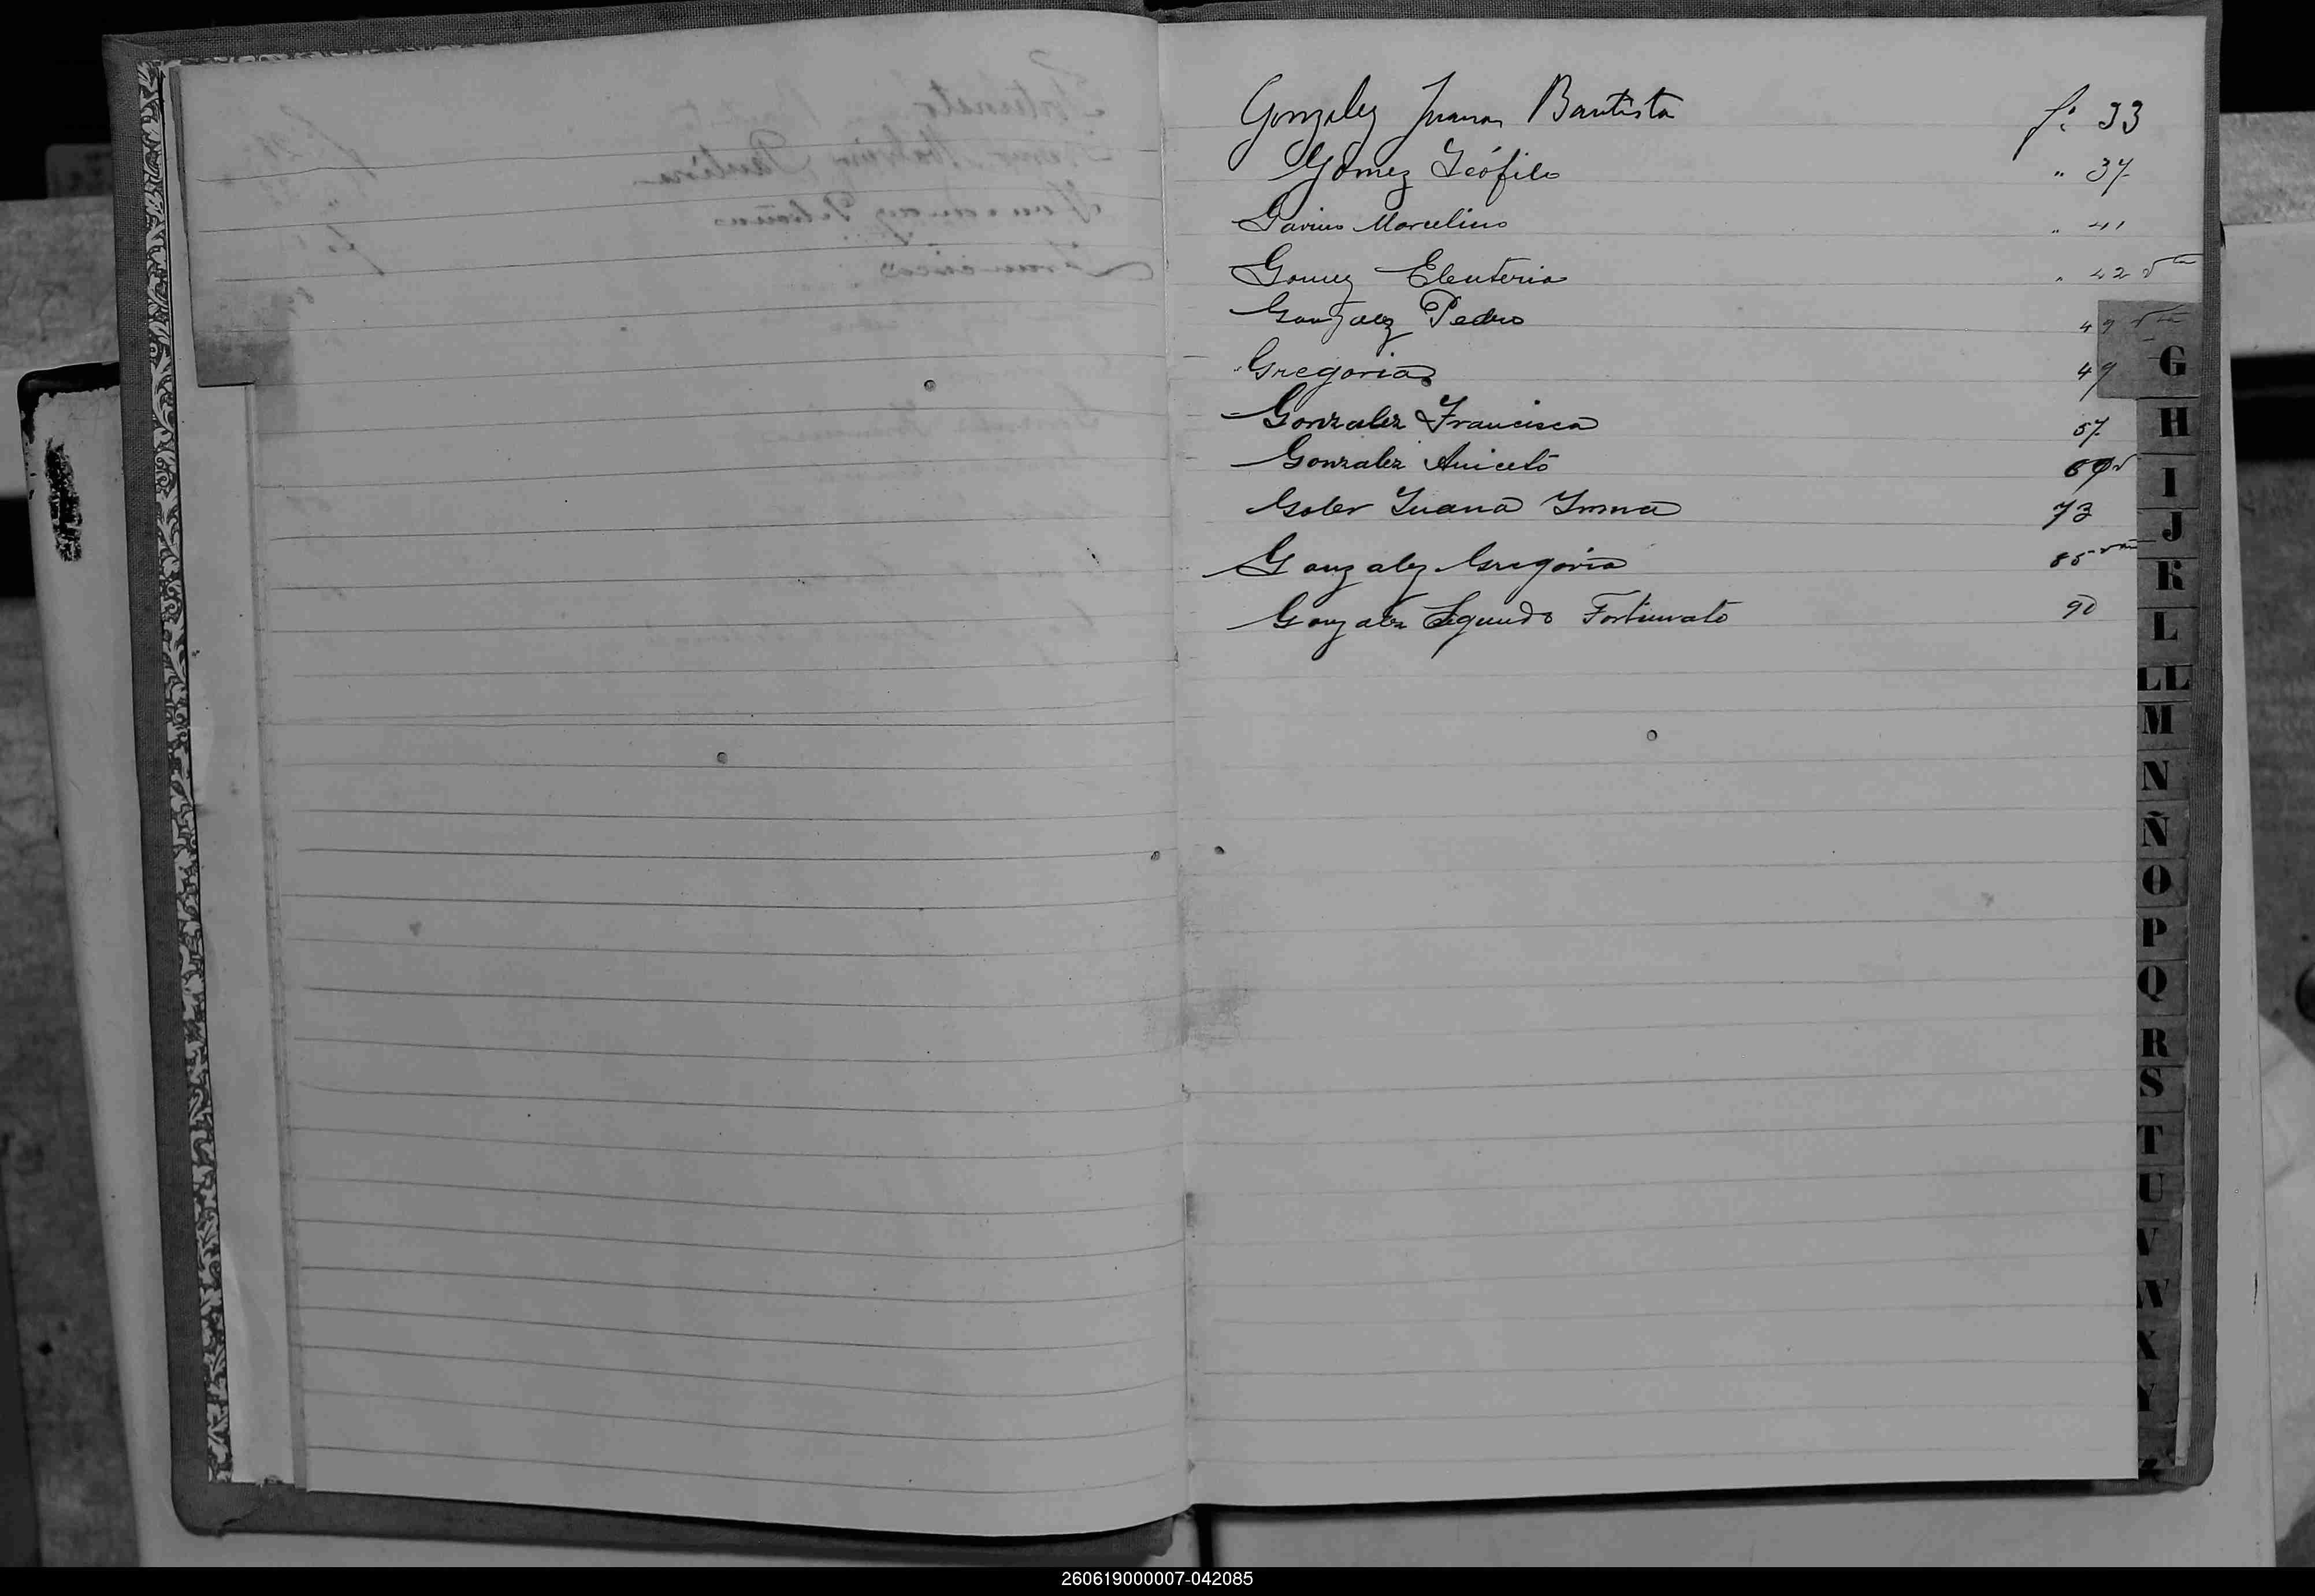 Gonzalez Juana Bautista fs. 33
Gómez Teófilo " 37
Gavino Marcelino " 41
Gomez Eleuteria " 42 vta
Gonzalez Pedro 49 vta
Gregoria 49
Gonzalez Francisca 57
Gonzalez Aniceto 69 v
Goler Juana Irma 73
Gonzalez Gregoria 85 vta
Gonzalez Segundo Fortunato 90
G
H
I
J
K
L
LL
M
N
Ñ
O
P
Q
R
S
T
U
V
W
X
Y
260619000007-042085